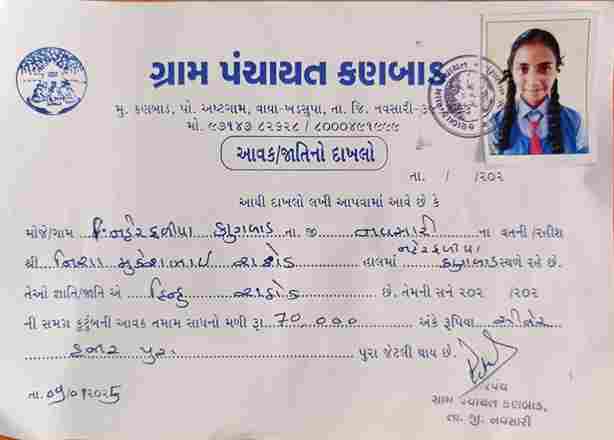 ગ્રામ પંચાયત કણબાડ
મુ. કણબાડ, પો. અષ્ટગામ, વાયા-ખડસુપા, તા. જિ. નવસારી-૩
મો. ૯૭૧૪૭ ૮૨૬૨૮ / ૮૦૦૦૪૯૧૯૯૯
આવક/જાતિનો દાખલો
તા. / /૨૦૨
આથી દાખલો લખી આપવામાં આવે છે કે
મોજે/ગામ નહેરફળીયા કણબાડ તા.જી નવસારી ના વતની/રહીશ
નહેરફળીયા
શ્રી નિશા મુકેશભાઈ રાઠોડ હાલમાં કણબાડ સ્થળે રહે છે.
તેઓ જ્ઞાતિ/જાતિ એ હિન્દુ રાઠોડ છે. તેમની સને ૨૦૨ /૨૦૨
ની સમગ્ર કુટુંબની આવક તમામ સાધનો મળી રૂા. 70,000 અંકે રૂપિયા સીત્તેર
હજાર પુરા પુરા જેટલી થાય છે.
તા. /૨૦૨5
સરપંચ
ગ્રામ પંચાયત કણબાડ,
તા. જી. નવસારી